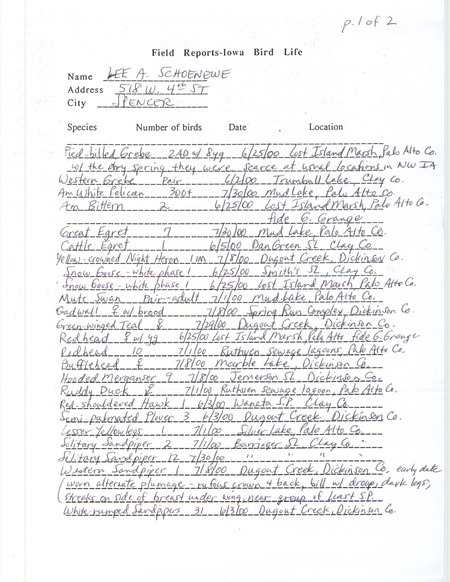 p. 1 of 2
Field Reports-Iowa Bird Life
Name LEE A. SCHOENEWE
Address 518 W. 4th ST
City SPENCER
Species Number of birds Date Location
Pied-billed Grebe 2AD w/ 8yg 6/25/00 Lost Island Marsh, Palo Alto Co.
w/ the dry spring they were scarce at usual locations in NW IA
Western Grebe Pair 6/2/00 Trumbull Lake, Clay Co.
Am White Pelican 300+ 7/30/00 Mud Lake, Palo Alto Co.
Am Bittern 2 6/25/00 Lost Island Marsh, Palo Alto Co.
fide G. Grange
Great Egret 7 7/30/00 Mud Lake, Palo Alto Co.
Cattle Egret 1 6/5/00 Dan Green Sl. Clay Co.
Yellow-crowned Night Heron 1 im 7/8/00 Dugout Creek, Dickinson Co.
Snow Goose - white phase 1 6/25/00 Smith's Sl., Clay Co.
Snow Goose - white phase 1 6/25/00 Lost Island Marsh, Palo Alto Co.
Mute Swan Pair-adult 7/1/00 Mud Lake, Palo Alto Co.
Gadwall ♀ w/ brood 7/8/00 Spring Run Complex, Dickinson Co.
Green-winged Teal 8 7/29/00 Dugout Creek, Dickinson Co.
Redhead ♀ w/ yg 6/25/00 Lost Island Marsh, Palo Alto fide G. Grange
Redhead 10 7/1/00 Ruthven Sewage lagoons, Palo Alto Co.
Bufflehead ♀ 7/8/00 Marble Lake, Dickinson Co.
Hooded Merganser 9 7/8/00 Jemerson Sl. Dickinson Co.
Ruddy Duck 7/1/00 Ruthven Sewage lagoon, Palo Alto Co.
Red-shouldered Hawk 1 6/3/00 Wanata S.P. Clay Co.
Semi-palmated Plover 3 6/3/00 Dugout Creek, Dickinson Co.
Lesser Yellowlegs 1 7/1/00 Silver Lake, Palo Alto Co.
Solitary Sandpiper 2 7/1/00 Barringer Sl. Clay Co.
Solitary Sandpiper 12 7/30/00 " " " "
Western Sandpiper 1 7/8/00 Dugout Creek, Dickinson Co. early date
worn alternate plumage - rufous crown & back, bill w/ droop, dark legs,
streaks on side of breast under wing, near group of Least SP.
White-rumped Sandpipers 31 6/3/00 Dugout Creek, Dickinson Co.